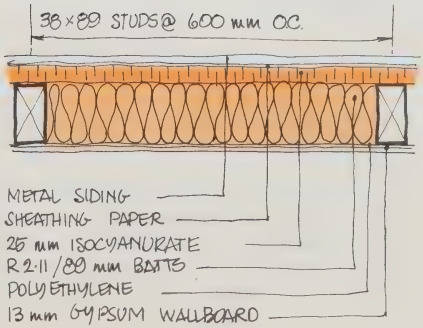 38×89 STUDS @ 600 mm O.C.
METAL SIDING
SHEATHING PAPER
25 mm ISOCYANURATE
R 2.11 / 89 mm BATTS
POLYETHYLENE
13 mm GYPSUM WALLBOARD